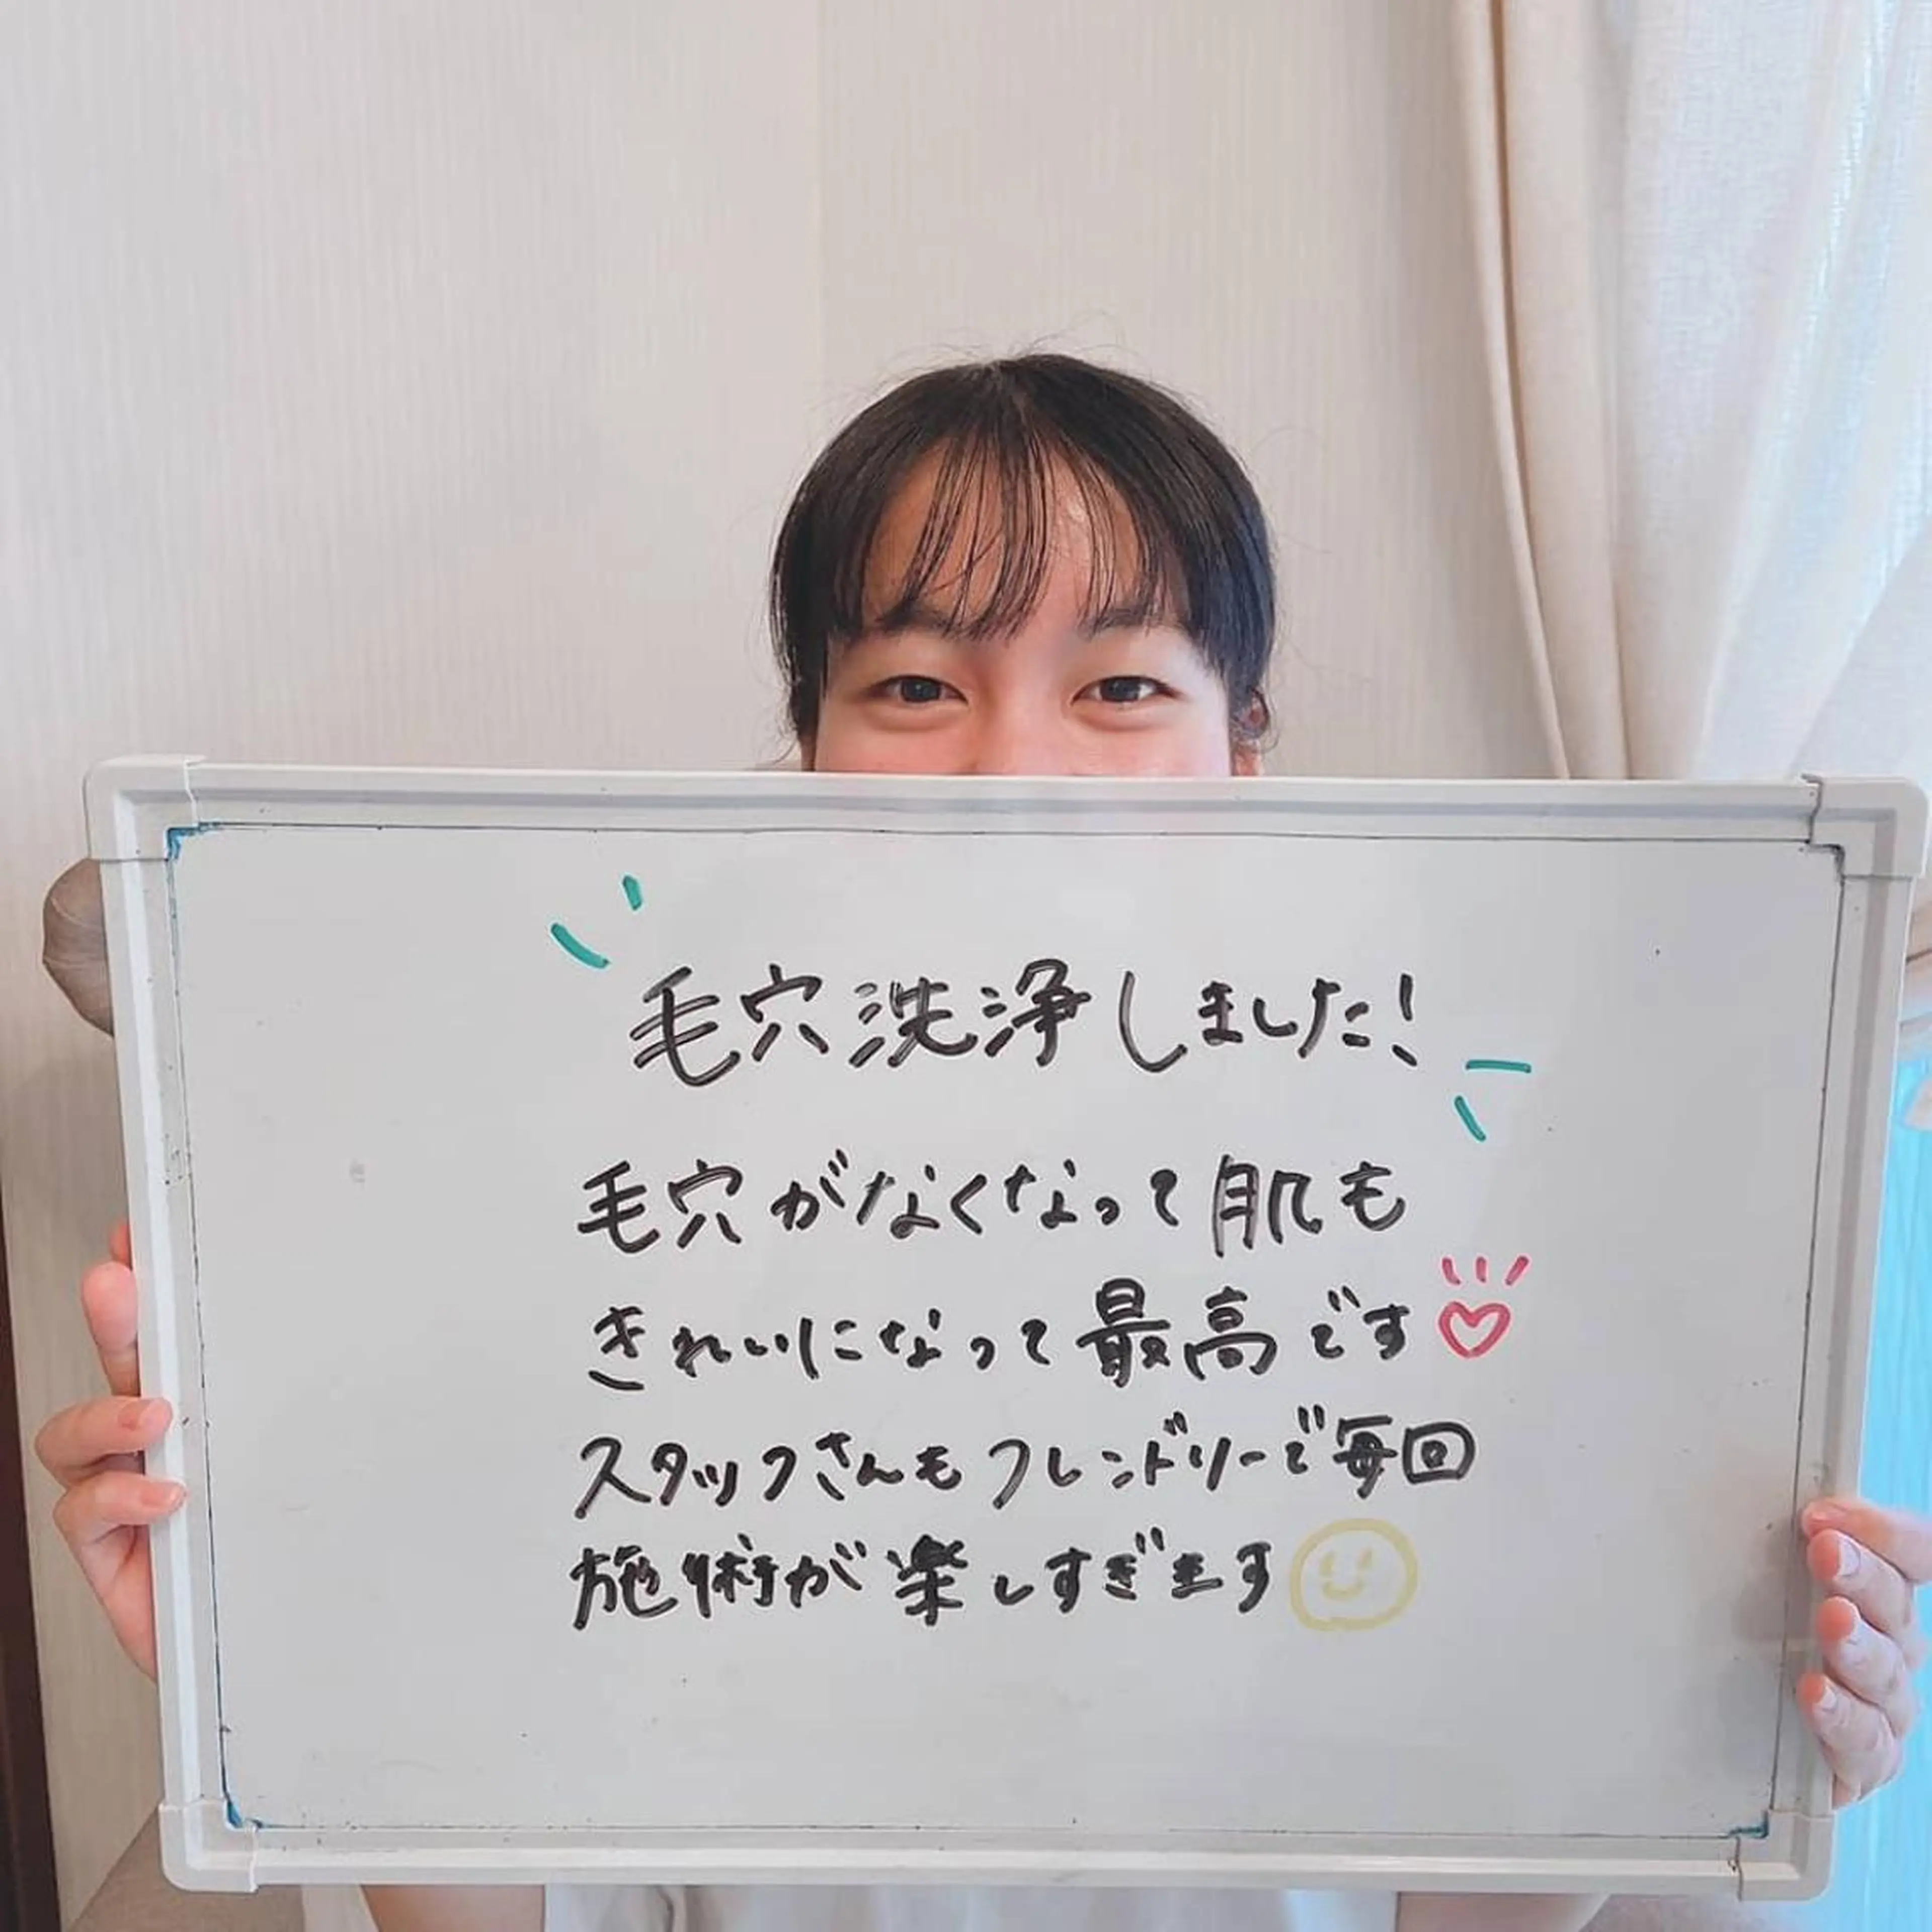 毛穴洗浄しました!
毛穴がなくなって肌も
きれいになって最高です♡
スタッフさんもフレンドリーで毎回
施術が楽しすぎます